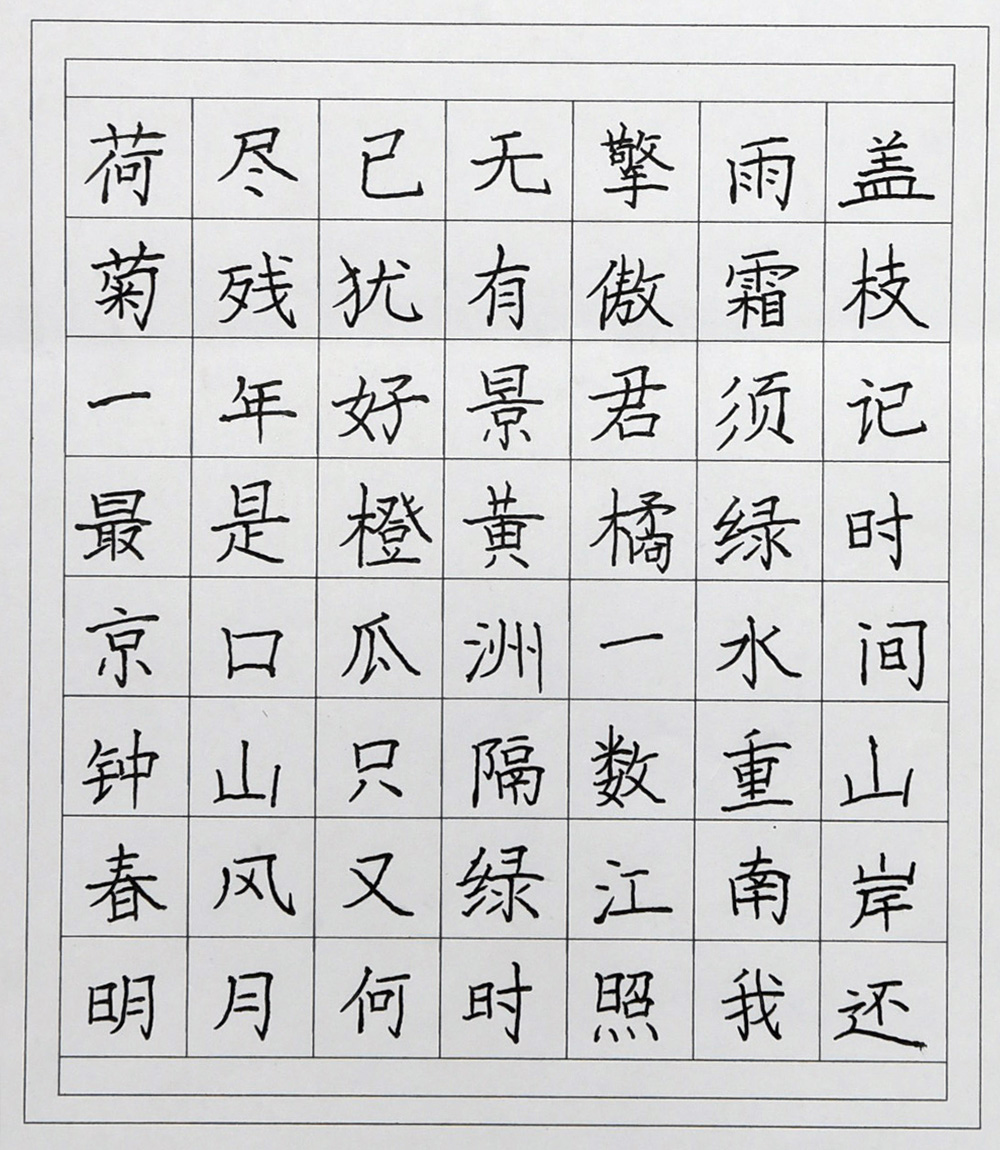 荷尽已无擎雨盖
菊残犹有傲霜枝
一年好景君须记
最是橙黄橘绿时
京口瓜洲一水间
钟山只隔数重山
春风又绿江南岸
明月何时照我还